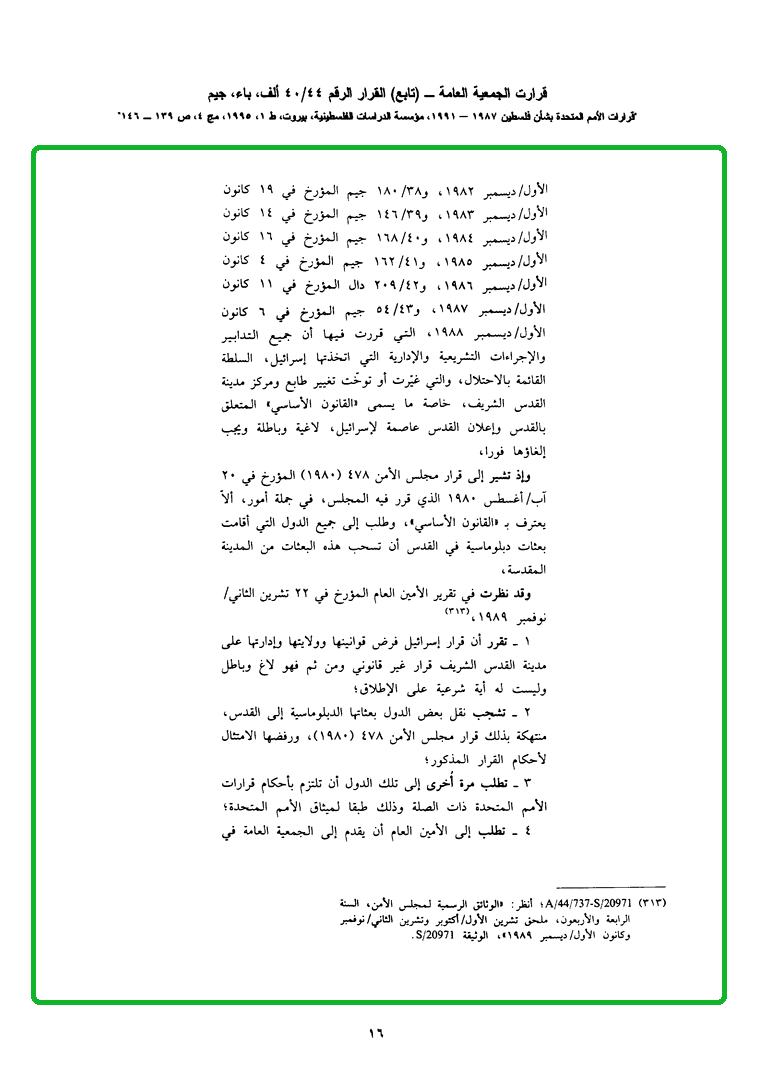 قرارت الجمعية العامة ــ (تابع) القرار الرقم ٤٠/٤٤ ألف، باء، جيم
"قرارات الأمم المتحدة بشأن فلسطين ١٩٨٧ – ١٩٩١، مؤسسة الدراسات الفلسطينية، بيروت، ط ١، ١٩٩٥، مج ٤، ص ١٣٩ ــ ١٤٦"
الأول/ديسمبر ١٩٨٢، و١٨٠/٣٨ جيم المؤرخ في ١٩ كانون
الأول/ديسمبر ١٩٨٣، و١٤٦/٣٩ جيم المؤرخ في ١٤ كانون
الأول/ديسمبر ١٩٨٤، و١٦٨/٤٠ جيم المؤرخ في ١٦ كانون
الأول/ديسمبر ١٩٨٥، و١٦٢/٤١ جيم المؤرخ في ٤ كانون
الأول/ديسمبر ١٩٨٦، و٢٠٩/٤٢ دال المؤرخ في ١١ كانون
الأول/ديسمبر ١٩٨٧، و٥٤/٤٣ جيم المؤرخ في ٦ كانون
الأول/ديسمبر ١٩٨٨، التي قررت فيها أن جميع التدابير
والإجراءات التشريعية والإدارية التي اتخذتها إسرائيل، السلطة
القائمة بالاحتلال، والتي غيّرت أو توخّت تغيير طابع ومركز مدينة
القدس الشريف، خاصة ما يسمى «القانون الأساسي» المتعلق
بالقدس وإعلان القدس عاصمة لإسرائيل، لاغية وباطلة ويجب
إلغاؤها فورا،
وإذ تشير إلى قرار مجلس الأمن ٤٧٨ (١٩٨٠) المؤرخ في ٢٠
آب/أغسطس ١٩٨٠ الذي قرر فيه المجلس، في جملة أمور، ألاّ
يعترف بـ «القانون الأساسي»، وطلب إلى جميع الدول التي أقامت
بعثات دبلوماسية في القدس أن تسحب هذه البعثات من المدينة
المقدسة،
وقد نظرت في تقرير الأمين العام المؤرخ في ٢٢ تشرين الثاني/
نوفمبر ١٩٨٩،(٣١٣)
١ ـ تقرر أن قرار إسرائيل فرض قوانينها وولايتها وإدارتها على
مدينة القدس الشريف قرار غير قانوني ومن ثم فهو لاغ وباطل
وليست له أية شرعية على الإطلاق؛
٢ ـ تشجب نقل بعض الدول بعثاتها الدبلوماسية إلى القدس،
منتهكة بذلك قرار مجلس الأمن ٤٧٨ (١٩٨٠)، ورفضها الامتثال
لأحكام القرار المذكور؛
٣ ـ تطلب مرة أُخرى إلى تلك الدول أن تلتزم بأحكام قرارات
الأمم المتحدة ذات الصلة وذلك طبقا لميثاق الأمم المتحدة؛
٤ ـ تطلب إلى الأمين العام أن يقدم إلى الجمعية العامة في
(٣١٣) A/44/737-S/20971؛ أنظر: «الوثائق الرسمية لمجلس الأمن، السنة
الرابعة والأربعون، ملحق تشرين الأول/أكتوبر وتشرين الثاني/نوفمبر
وكانون الأول/ديسمبر ١٩٨٩»، الوثيقة S/20971.
١٦